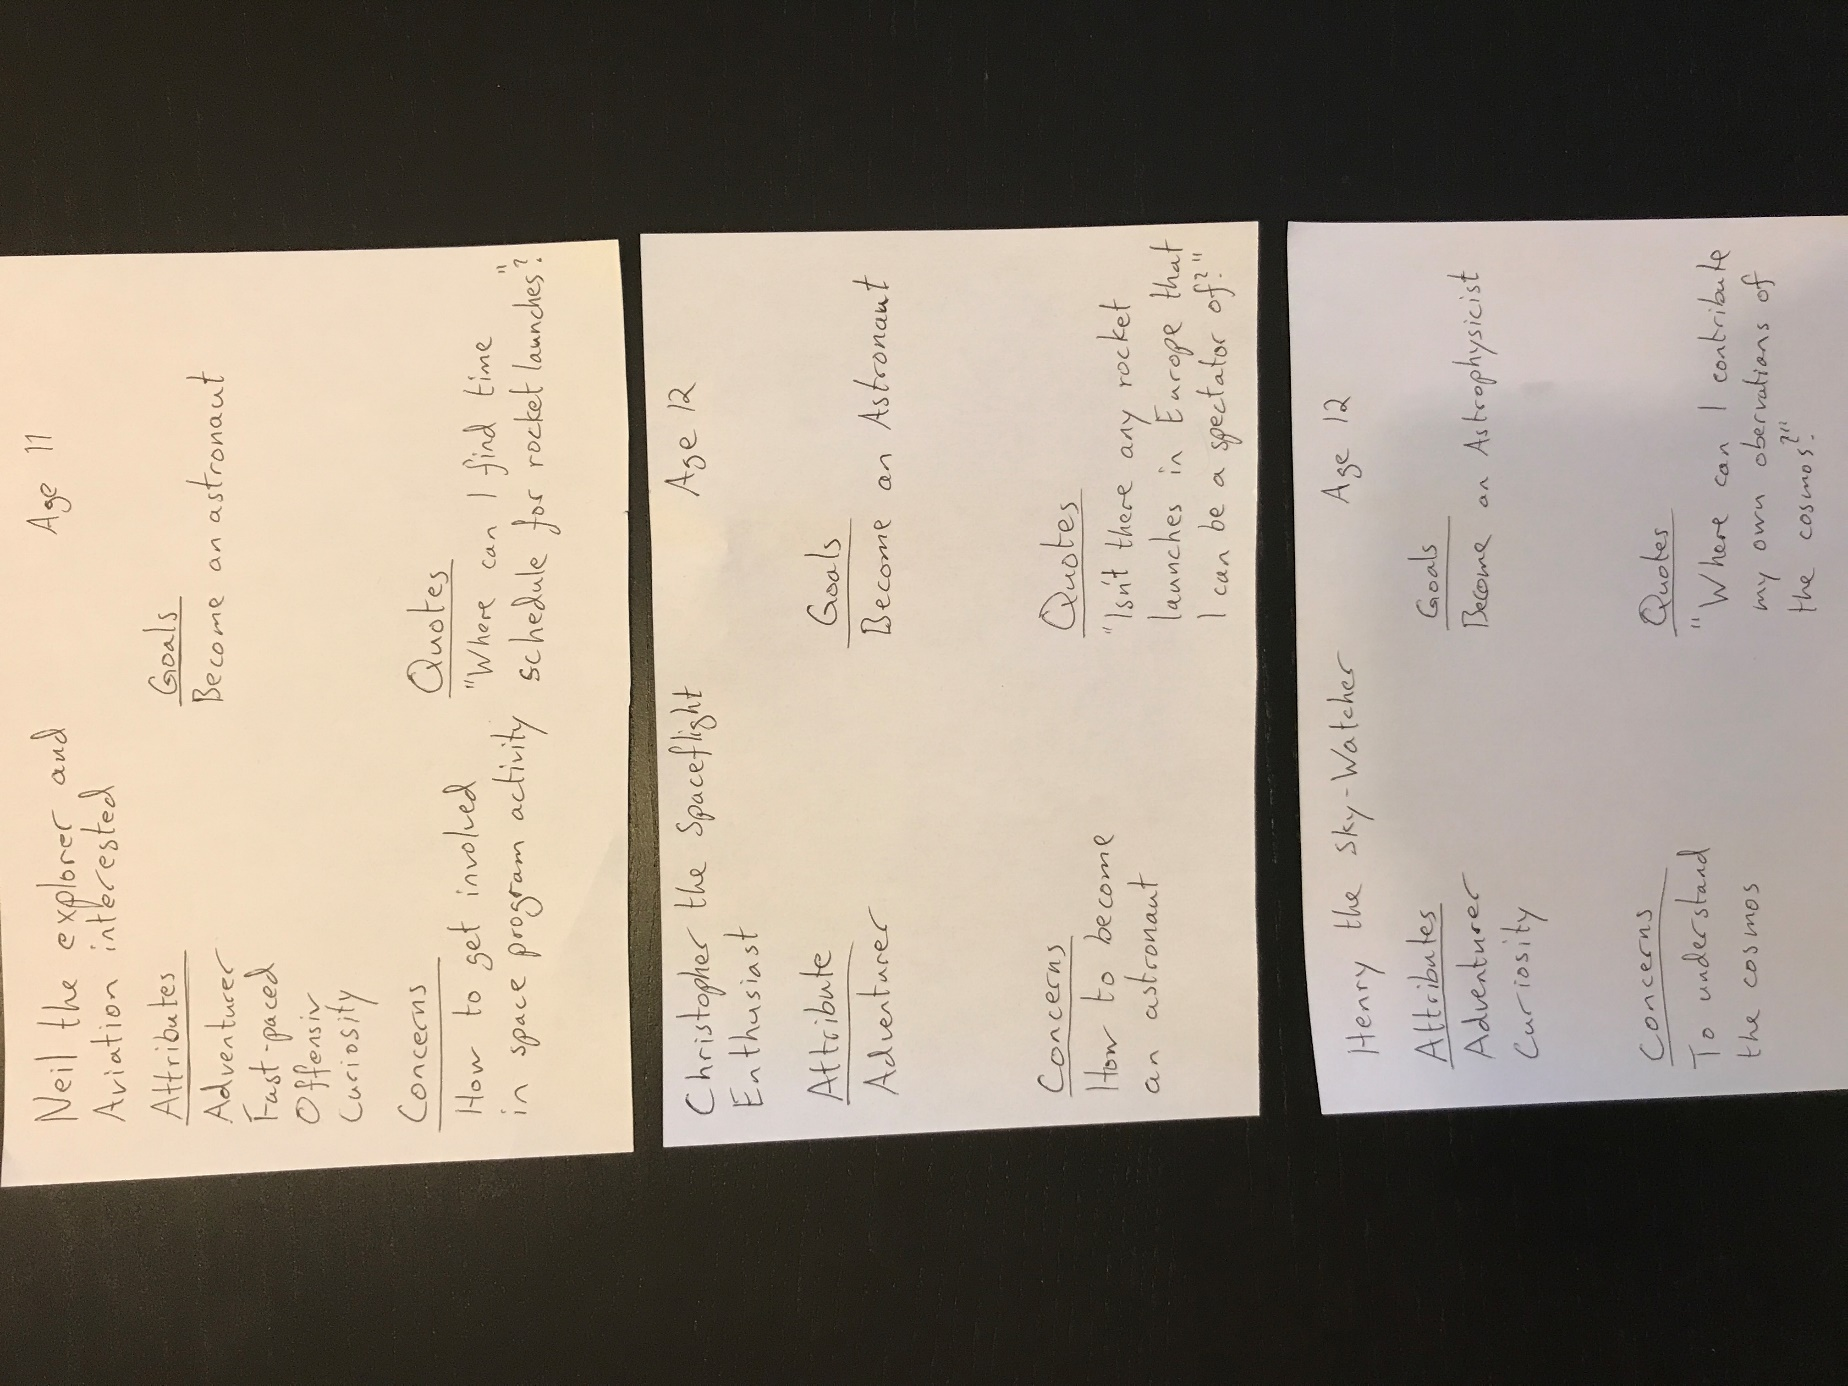 Neil the explorer and
Aviation interested
Age 11
Attributes
Adventurer
Fast-paced
Offensiv
Curiosity
Goals
Become an astronaut
Concerns
How to get involved
in space program activity
Quotes
"Where can I find time
schedule for rocket launches?"
Christopher the Spaceflight
Enthusiast
Age 12
Attribute
Adventurer
Goals
Become an Astronaut
Concerns
How to become
an astronaut
Quotes
"Isn't there any rocket
launches in Europe that
I can be a spectator of?"
Henry the Sky-Watcher
Age 12
Attributes
Adventurer
Curiosity
Goals
Become an Astrophysicist
Concerns
To understand
the cosmos
Quotes
"Where can I contribute
my own obervations of
the cosmos?"